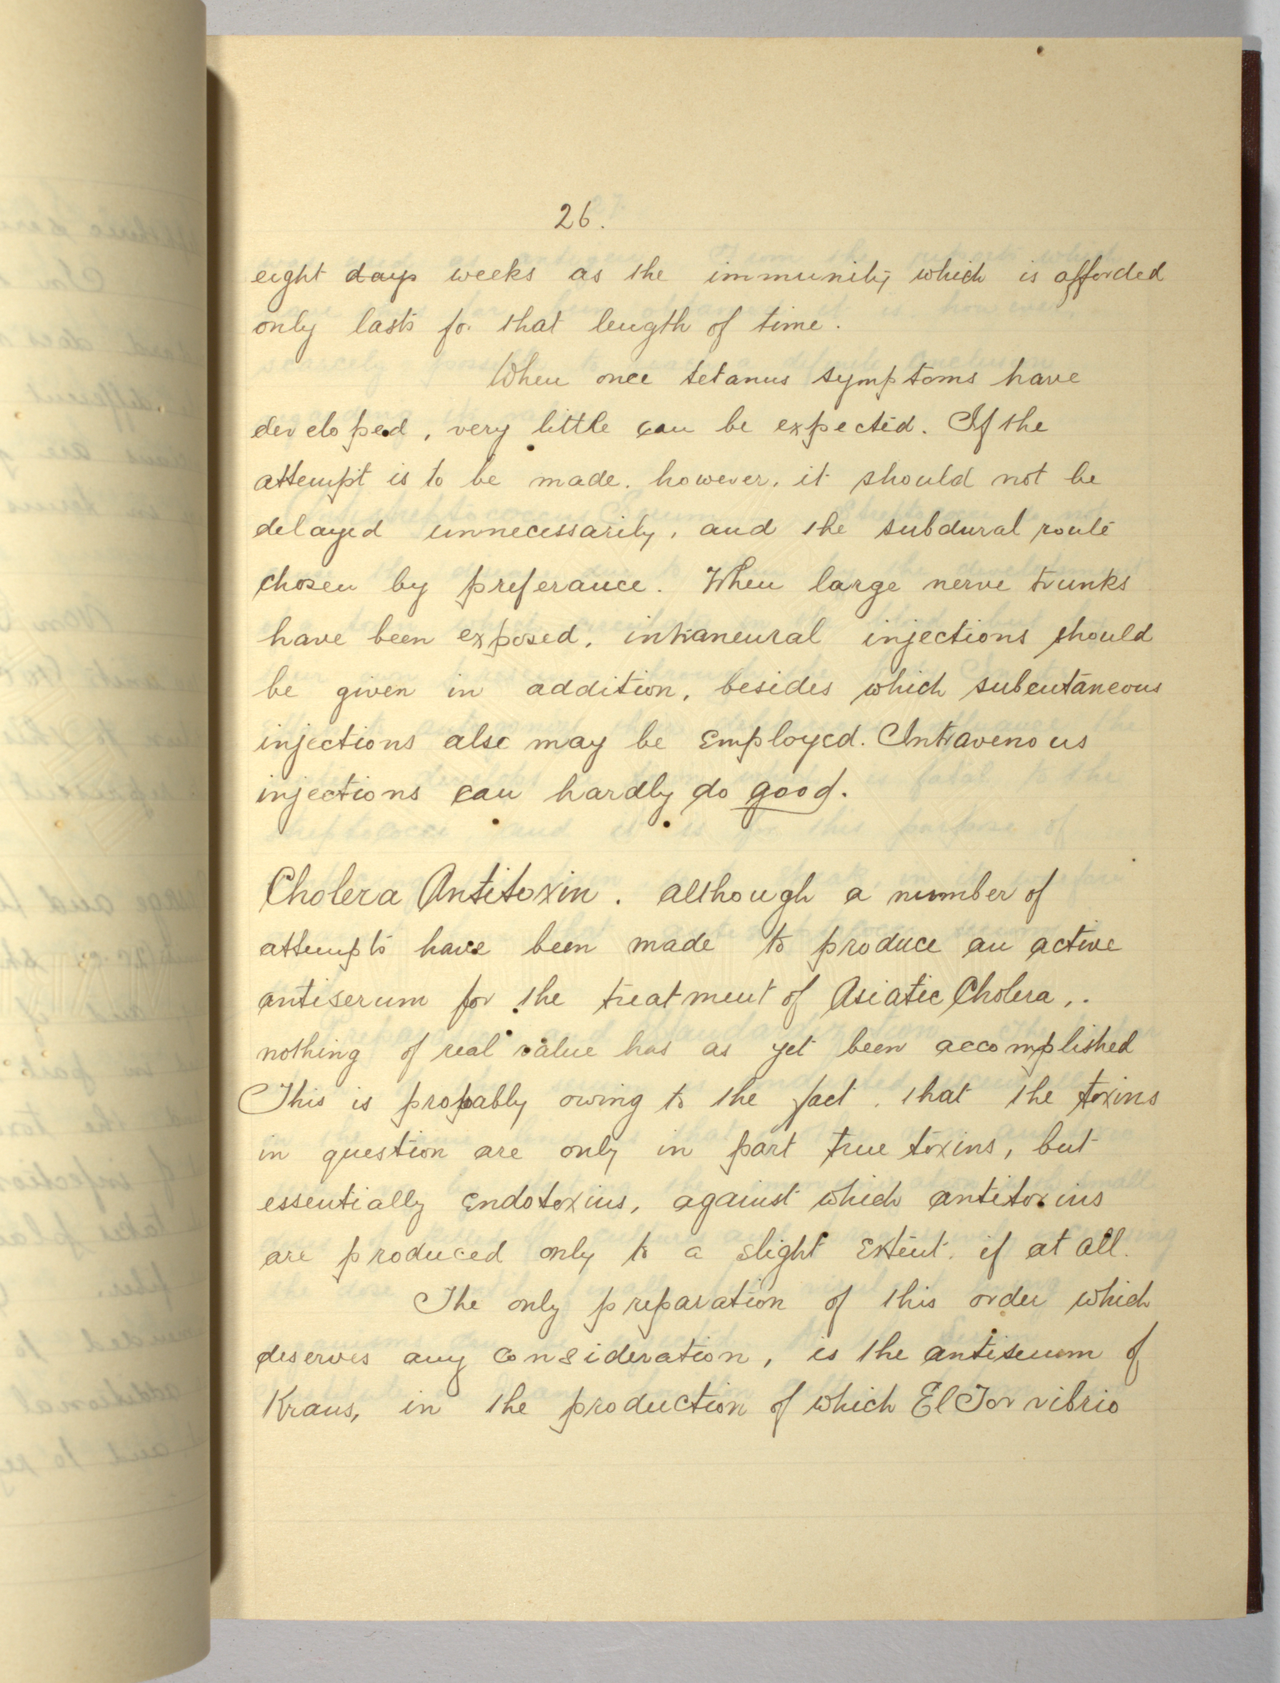 26.
eight days weeks as the immunity which is afforded
only lasts for that length of time.
When once tetanus symptoms have
developed, very little can be expected. If the
attempt is to be made. however, it should not be
delayed unnecessarily, and the subdural route
chosen by preferance. When large nerve trunks
have been exposed, intraneural injections should
be given in addition, besides which subcutaneous
injections also may be employed. Intravenous
injections can hardly do good.
Cholera Antitoxin. Although a number of
attempts have been made to produce an active
antiserum for the treatment of Asiatic Cholera,.
nothing of real value has as yet been accomplished
This is propably owing to the fact. that the toxins
in question are only in part true toxins, but
essentially endotoxins, against which antitoxins
are produced only to a slight extent. if at all.
The only preparation of this order which
deserves any consideration, is the antiserum of
Kraus, in the production of which El Tor vibrio